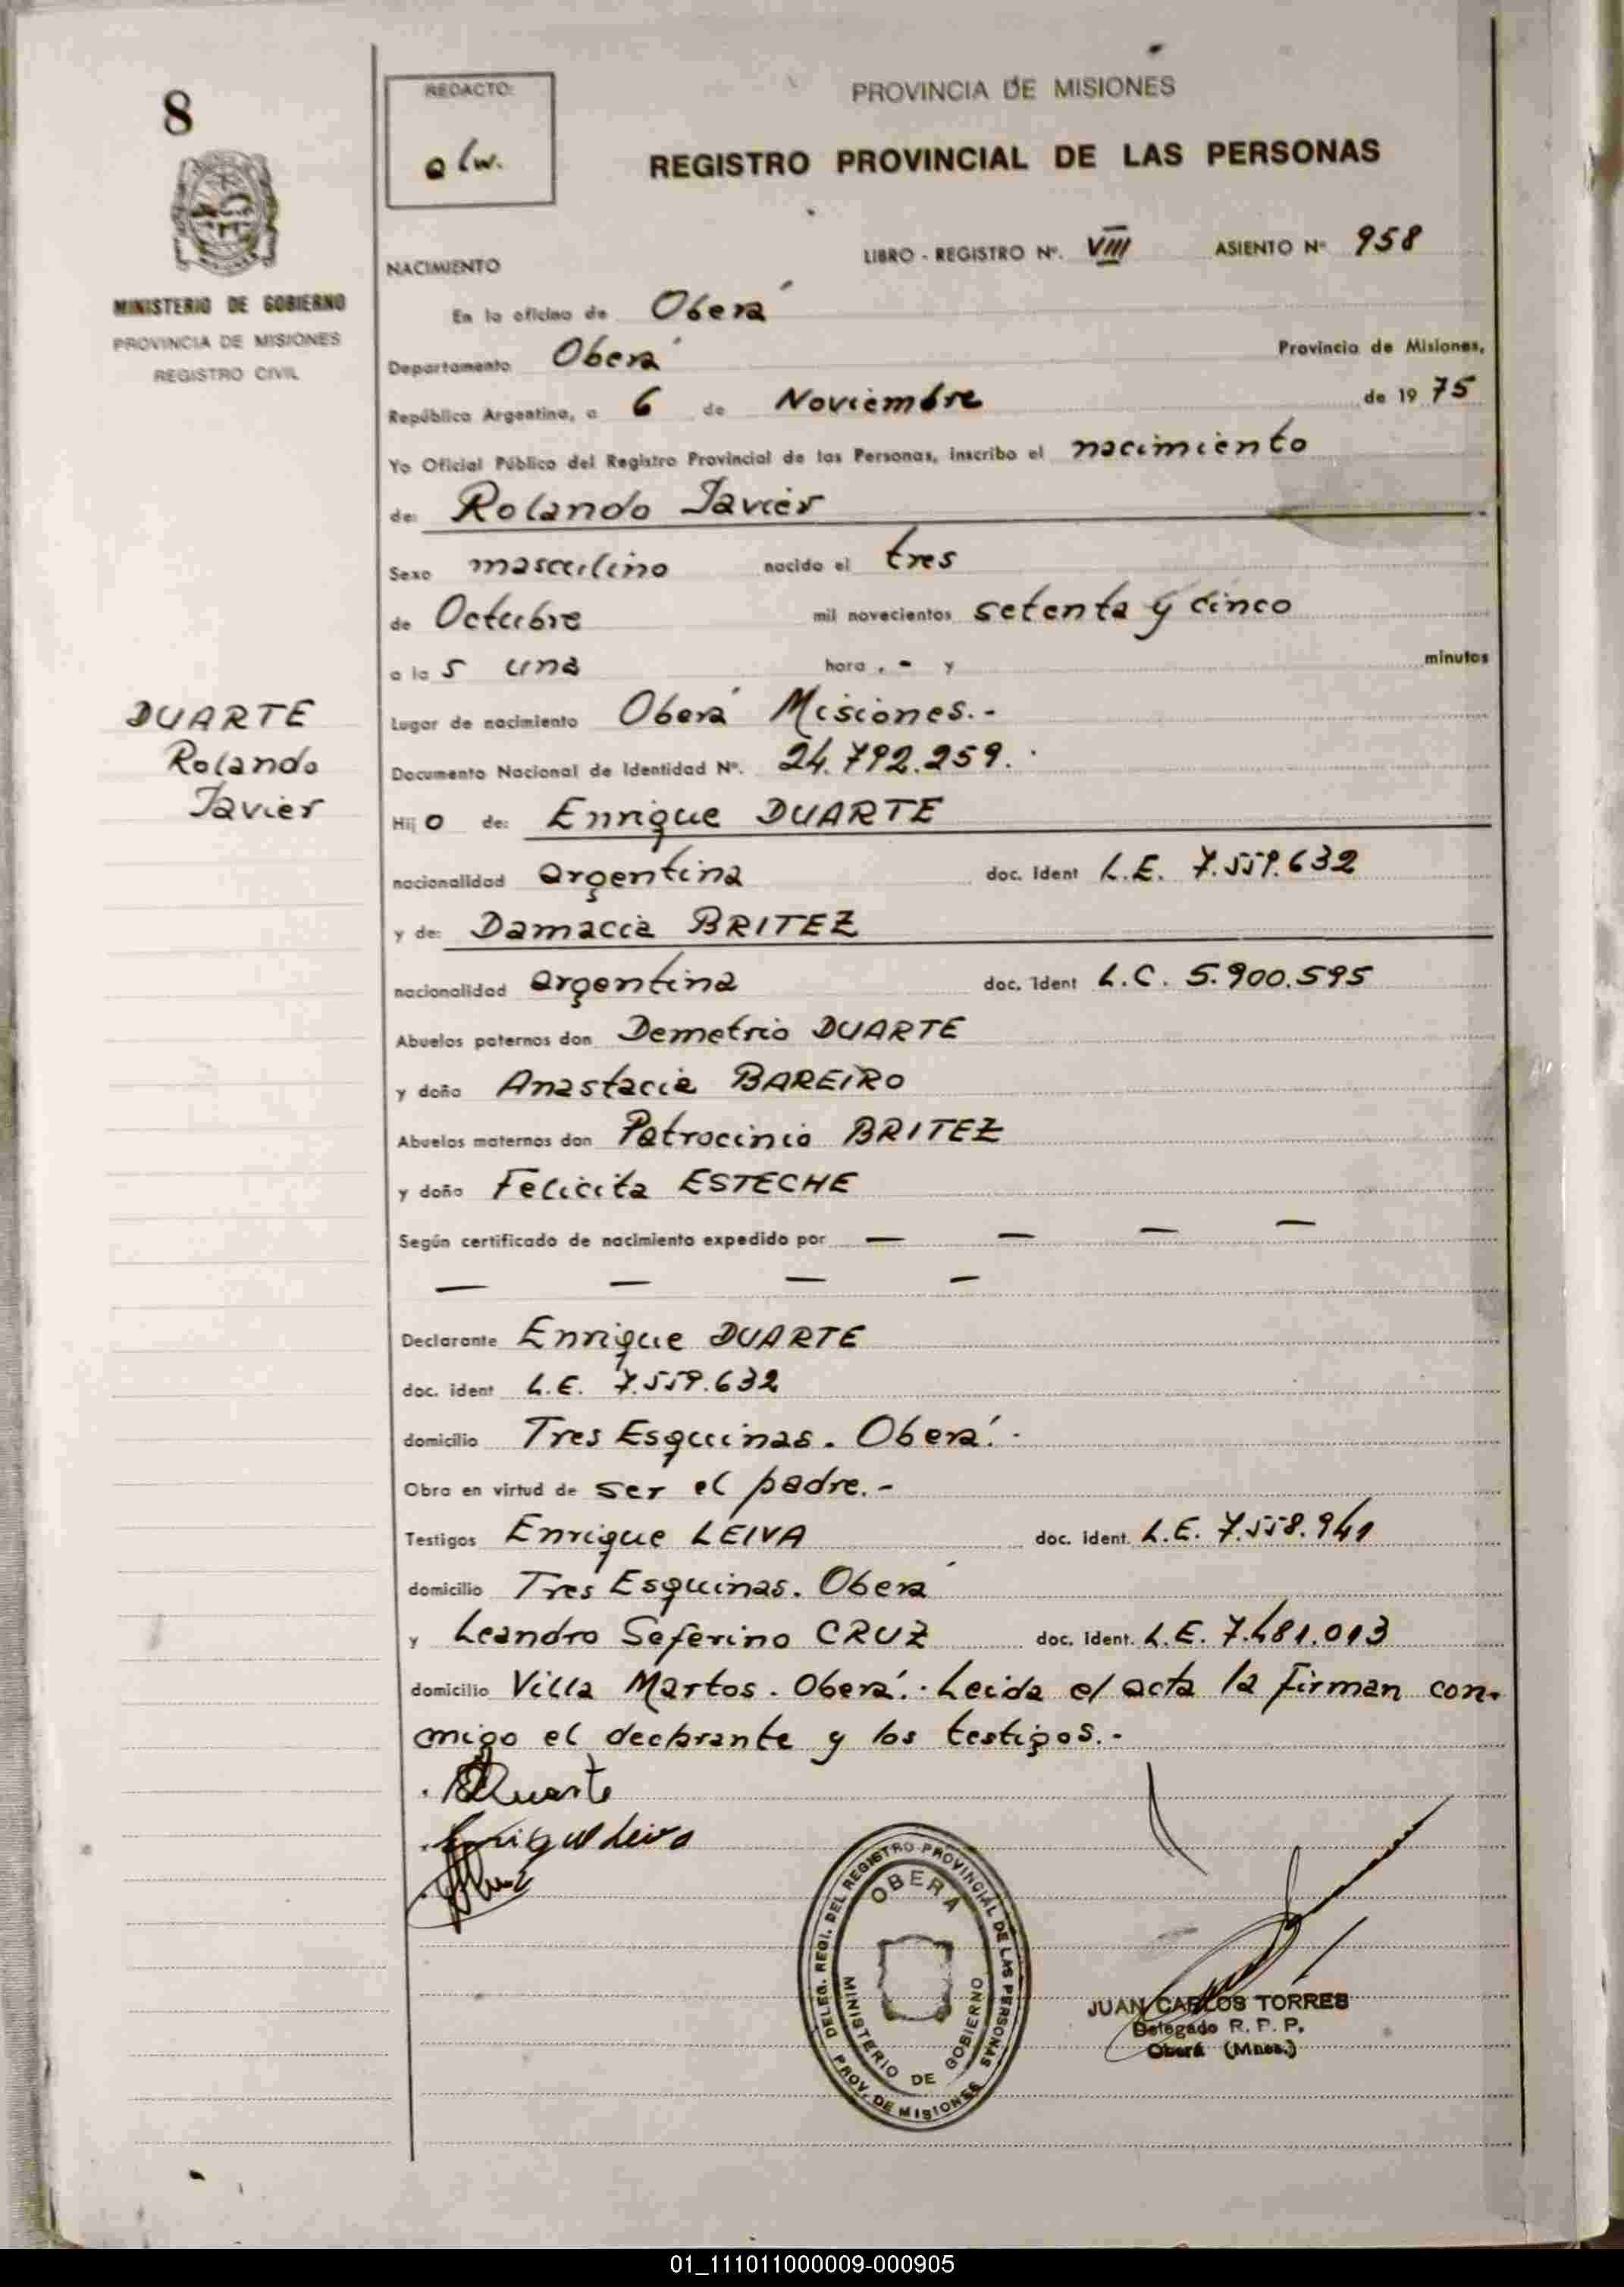 8
MINISTERIO DE GOBIERNO
PROVINCIA DE MISIONES
REGISTRO CIVIL
REDACTO:
PROVINCIA DE MISIONES
REGISTRO PROVINCIAL DE LAS PERSONAS
NACIMIENTO LIBRO - REGISTRO Nº. VIII ASIENTO Nº 958
En la oficina de Oberá
Departamento Oberá Provincia de Misiones,
República Argentina, a 6 de Noviembre de 19 75
Yo Oficial Público del Registro Provincial de las Personas, inscribo el nacimiento
de: Rolando Javier
Sexo masculino nacido el tres
de Octubre mil novecientos setenta y cinco
a la s una hora . - y minutos
DUARTE
Rolando
Javier
Lugar de nacimiento Oberá Misiones.-
Documento Nacional de Identidad Nº. 24.792.259.
Hij o de: Enrique DUARTE
nacionalidad argentina doc. ident L.E. 7.559.632
y de: Damacia BRITEZ
nacionalidad argentina doc. ident L.C. 5.900.595
Abuelos paternos don Demetrio DUARTE
y doña Anastacia BAREIRO
Abuelos maternos don Patrocinio BRITEZ
y doña Felicita ESTECHE
Según certificado de nacimiento expedido por — — — —
— — — —
Declarante Enrique DUARTE
doc. ident L.E. 7.559.632
domicilio Tres Esquinas. Oberá.-
Obra en virtud de ser el padre.-
Testigos Enrique LEIVA doc. ident. L.E. 7.558.941
domicilio Tres Esquinas. Oberá
y Leandro Seferino CRUZ doc. ident. L.E. 7.481.013
domicilio Villa Martos. Oberá.- Leida el acta la firman con-
migo el declarante y los testigos.-
Duarte
Enrique Leiva
DELEG. REGI. DEL REGISTRO PROVINCIAL DE LAS PERSONAS
OBERA
MINISTERIO DE GOBIERNO
PROV. DE MISIONES
JUAN CARLOS TORRES
Delegado R. P. P.
Oberá (Mnes.)
01_111011000009-000905